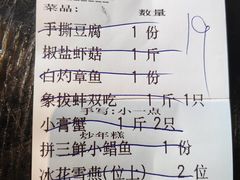 菜品: 数量
19
手撕豆腐 1 份
椒盐虾菇 1 斤
白灼章鱼 1 份
象拔蚌双吃 1 斤1只
手写:小一点
小膏蟹 1 斤2只
炒年糕
拼三鲜小鲳鱼 1 份
冰花雪燕(位上) 2 位